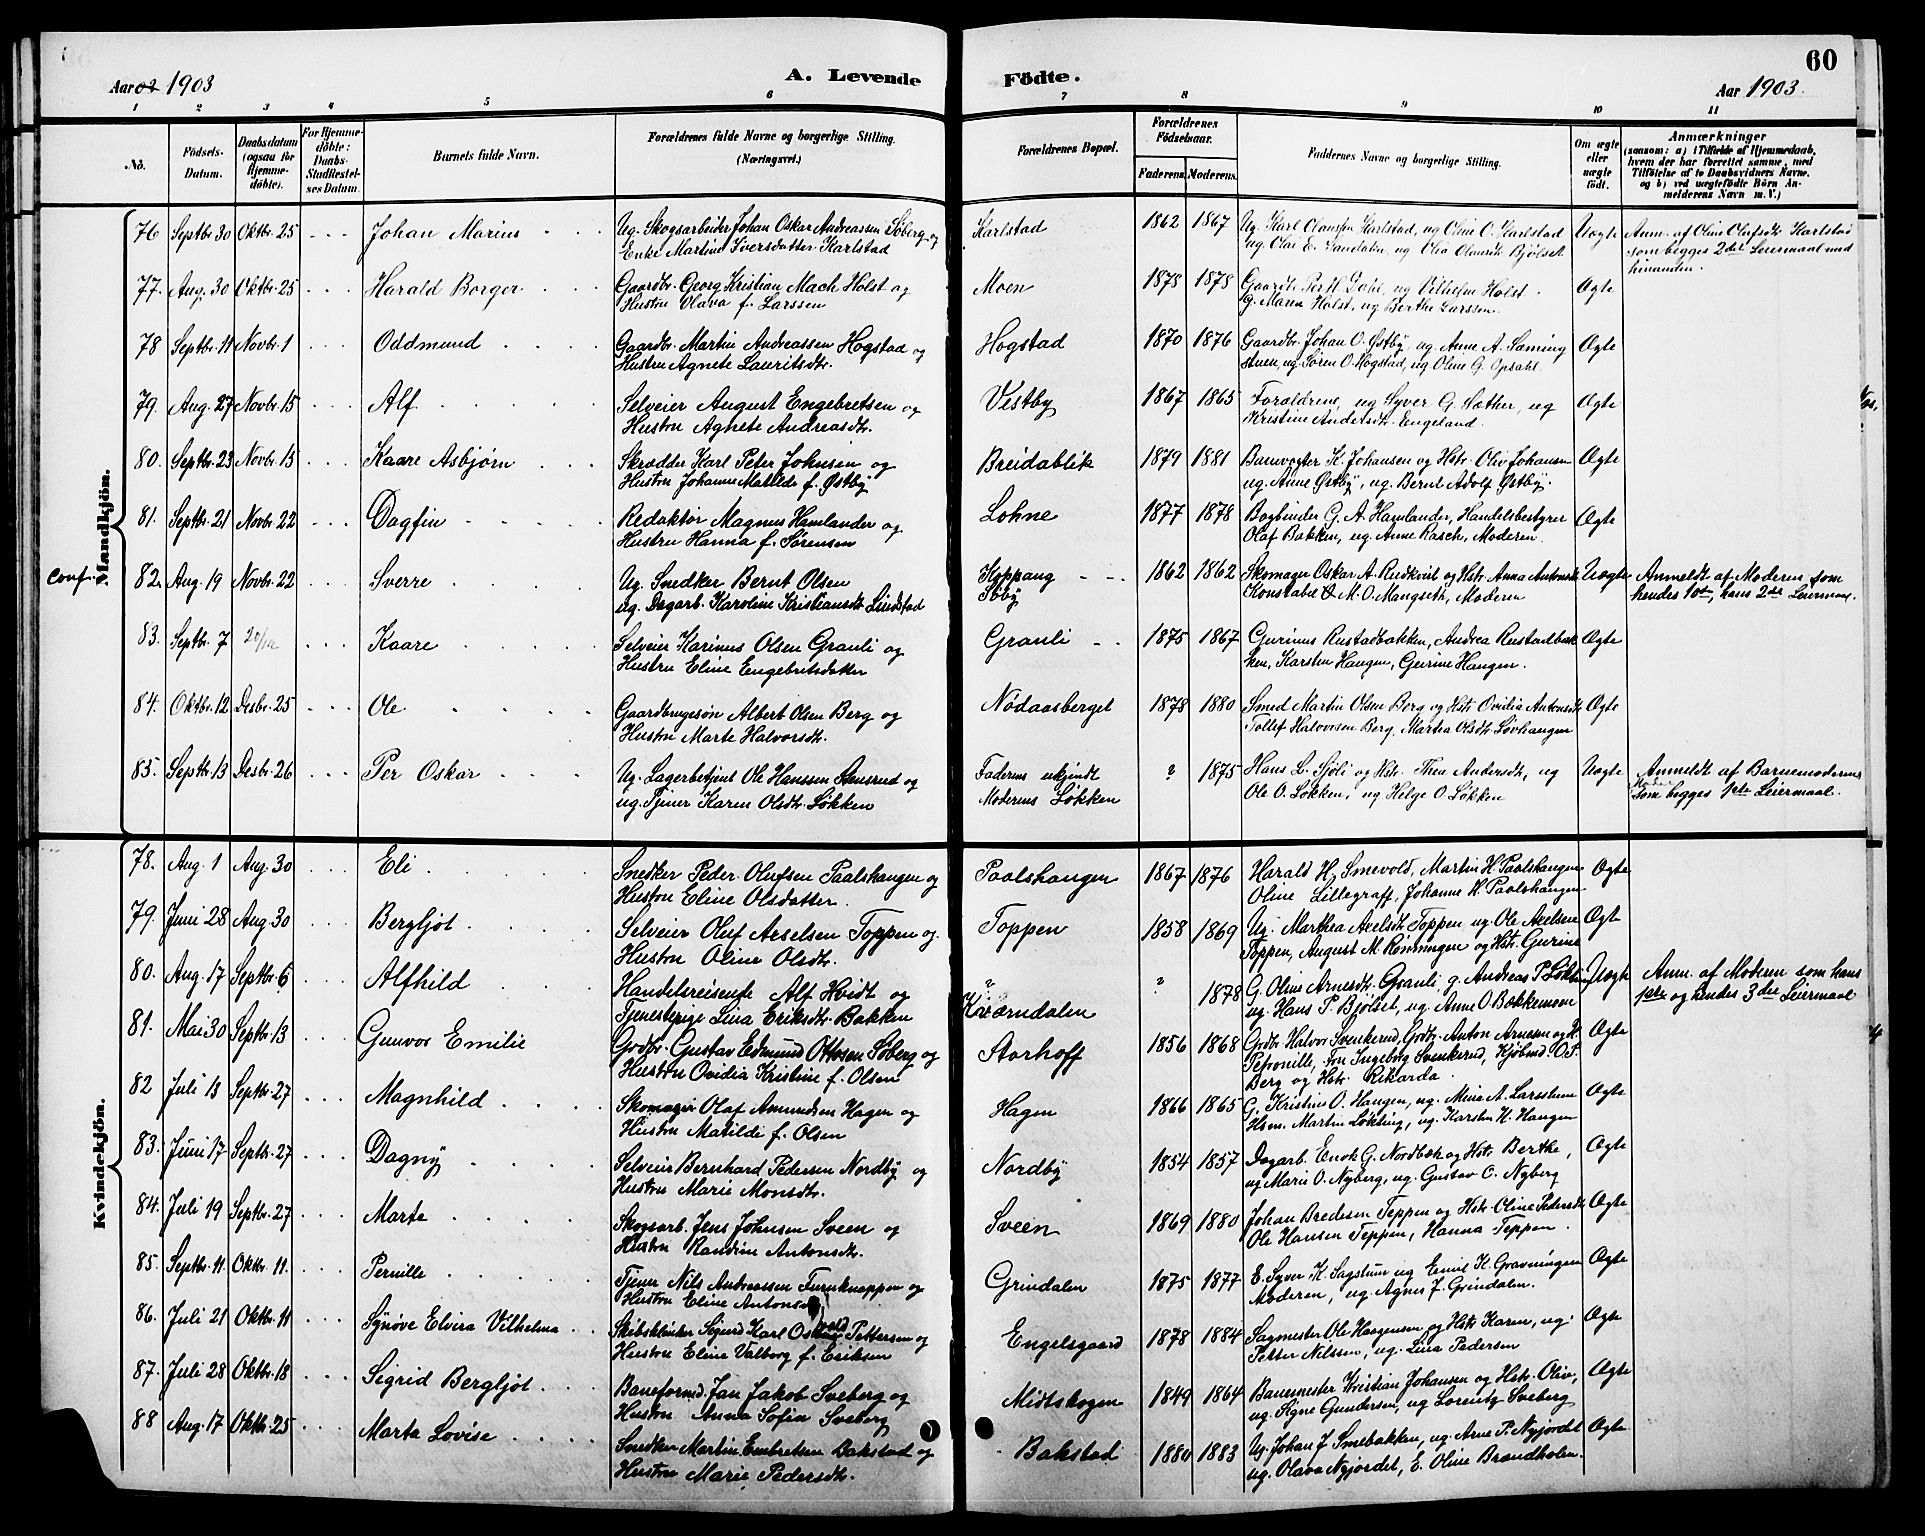 60
Aar 03 1903
A. Levende Födte.
Aar 1903.
1 2 3 4 5 6 7 8 9 10 11
No.
Födsels-Datum.
Daabsdatum (ogsaa for Hjemme-döbte).
For Hjemme-döbte: Daabs-Stadfæstel-ses Datum.
Barnets fulde Navn.
Forældrenes fulde Navne og borgerlige Stilling. (Næringsvei.)
Forældrenes Bopæl.
Forældrenes Födselsaar.
Faderens. Moderens.
Faddernes Navne og borgerlige Stilling.
Om ægte eller uægte födt.
Anmærkninger
(saasom: a) i Tilfælde af Hjemmedaab, hvem der har forrettet samme, med Tilföielse af to Daabsvidners Navne, og b) ved uægtefödte Börn An-melderens Navn m. V.)
Mandkjön.
76 Septbr 30 Oktbr 25 Johan Marius Ug. Skogsarbeider Johan Oskar Andreassen Søberg og Karlstad 1862 1867 Ug. Karl Olausen Karlstad, ug Oline O. Karlstad Uægte Anm. af Oline Olufsdt. Karlstad
Enke Martine Iversdatter Karlstad ug. Olai E. Sandalen, ug Olia Olausdt Bjølset som begges 2det Leiermaal med
hinanden.
77. Aug. 30 Oktbr. 25 Harald Borger Gaardbr. Georg Kristian Mach Holst og Moen 1878 1878 Gaardb. Per H. Dahl, ug Vilhelm Holst. Ægte
Hustru Olava f. Larssen g. Maren Holst, ug Berthe Larssen.
78 Septbr. 11 Novbr. 1 Oddmund Gaardbr. Martin Andreassen Hogstad og Hogstad 1870 1876 Gaardbr. Johan O. Østby, ug. Anne A. Sæming Ægte
Hustru Agnete Lauritsdt. stuen, ug. Søren O. Hogstad, ug Oline G. Opsahl.
79. Aug. 27 Novbr. 15 Alf Selveier August Engebretsen og Vestby 1867 1865 Forældrene, ug Syver G. Sæther, ug Ægte
Hustru Agnete Andreasdt. Kristine Andersdt. Engeland.
80. Septbr. 23 Novbr. 15 Kaare Asbjørn Skrædder Karl Peter Johnsen og Breidablik 1879 1881 Banevogter K. Johansen og Hstr. Oliv Johansen Ægte
Hustru Johanne Matilde f. Østby ug. Anne Østby, ug. Bernt Adolf Østby.
81. Septbr. 21 Novbr. 22 Dagfin Redaktør Magnus Hamlander og Lohne 1877 1878 Bogbinder G. A. Hamlander, Handelsbestyrer Ægte
Hustru Hanna f. Sørensen Olaf Bakken, ug. Anne Rasch, Moderen.
conf.
82. Aug. 19 Novbr. 22 Sverre Ug. Snedker Bernt Olsen Koppang 1862 1862 Skomager Oskar A. Rudkvist og Hstr. Anna Antonsdt. Uægte Anmeldt af Moderen som
ug. Dagarb. Karoline Kristiansdt. Lindstad Søby Konstabel M. O. Mangseth, Moderen hendes 1ste, hans 2det Leiermaal.
83. Septbr. 7 20/12 Kaare Selveier Karinus Olsen Granli og Granli 1875 1867 Gurinus Rustadbakken, Andrea Rustadbak Ægte
Hustru Eline Engebretsdatter ken, Karsten Haugen, Gurine Haugen.
84. Oktbr. 12 Desbr. 25 Ole Gaardbrugesøn Albert Olsen Berg og Nødaasberget 1878 1880 Smed Martin Olsen Berg og Hstr Ovidia Antonsdt Ægte
Hustru Marte Halvorsdt. Tollef Halvorsen Berg, Martea Olsdt. Løvhaugen
85. Septbr. 13 Desbr. 26 Per Oskar Ug. Lagerbetjent Ole Hanssen Stensrud og Faderens ukjendt ? 1875 Hans L. Sjøli og Hstr. Thea Andersdt., ug Uægte Anmeldt af Barnemoderens
ug. Tjener Karen Olsdt. Løkken Moderens Løkken Ole O. Løkken, ug Helge O. Løkken som begges 1ste Leiermaal.
Kvindekjön.
78. Aug. 1 Aug. 30 Eli Snedker Peder Olufsen Paalshaugen og Paalshaugen 1867 1876 Harald H. Smevold, Martin H. Paalshaugen Ægte
Hustru Eline Olsdatter. Oline Lillegraff, Johanne H. Paalshaugen
79. Juni 28 Aug. 30 Bergljot Selveier Oluf Axelsen Toppen og Toppen 1858 1869 Ug. Marthea Axelsdt Toppen, ug. Ole Axelsen Ægte
Hustru Oline Olsdt. Toppen, August M. Rønningen og Hstr. Gurine
80. Aug. 17 Septbr. 6 Alfhild Handelsreisende Alf Hvidt og ? ? 1878 G. Oline Arnesdt. Granli, g. Andreas P. Løkken Uægte Anm. af Moderen som hans
Tjenestepige Lina Eriksdt. Bakken Kværndalen ug. Hans P. Bjølset, ug. Anne O. Bakkemoen 1ste og hendes 3die Leiermaal
81. Mai 30 Septbr. 13 Gunvor Emilie Grdbr. Gustav Edmund Ottosen Søberg og Storhoff 1856 1868 Grdbr Halvor Svenkerud, Grdbr. Anton Arnesen og H. Ægte
Hustru Ovidia Kristine f. Olsen Petronille, Fru Ingeborg Svenkerud, Kjøbmd O. F.
Berg og Hstr. Rikarda.
82 Juli 13 Septbr. 27 Magnhild Skomager Olaf Amundsen Hagen og Hagen 1866 1865 G. Kristine O. Haugen, ug. Mina A. Larsstuen Ægte
Hustru Matilde f. Olsen Hsm. Martin Løkting, ug. Karsten H. Haugen
83. Juni 17 Septbr. 27 Dagny Selveier Bernhard Pedersen Nordby og Nordby 1854 1857 Dagarb. Enok G. Nordbæk og Hstr Berthe, Ægte
Hustru Marie Monsdt. ug Marie O. Nyberg, ug. Gustav C. Nyberg
84. Juli 19 Septbr. 27 Marte Skogsarb. Jens Johnsen Sveen og Sveen 1869 1880 Johan Bredesen Teppen og Hstr Oline Pedersdt Ægte
Hustru Randine Antonsdt. Ole Hansen Teppen, Hanna Teppen.
85. Septbr. 11 Oktbr. 11. Pernille Tjener Nils Andreassen Furuknappen og Grindalen 1875 1877 E. Syver K. Sagstuen ug Emil K. Gravningen Ægte
Hustru Eline Antonsdt. Moderen, ug. Agnes J. Grindalen.
86. Juli 21 Oktbr. 11 Synøve Elvira Vilhelma Skibsklinker Sigurd Karl Oskar Pettersen og Engelsgaard 1878 1884 Sagmester Ole Haagensen og Hstr Karen, ug. Ægte
Hustru Eline Valborg f. Eriksen Petter Nilssen, ug. Lina Pedersen
87. Juli 28 Oktbr. 18 Sigrid Bergljot Baneformd. Jan Jakob Sveberg og Midtskogen 1849 1864 Banemester Kristian Johansen og Hstr. Oliv, Ægte
Hustru Anna Sofia Sveberg ug. Signe Gundersen, ug Lorentz Sveberg
88 Aug. 17 Oktbr. 25 Marta Lovise Snedker Martin Embretsen Bakstad og Bakstad 1880 1883 Ug. Johan J. Smebakken, ug. Arne P. Nyjordet Ægte
Hustru Marie Pedersdt. ug. Olava Nyjordet, E. Oline Brændholen.